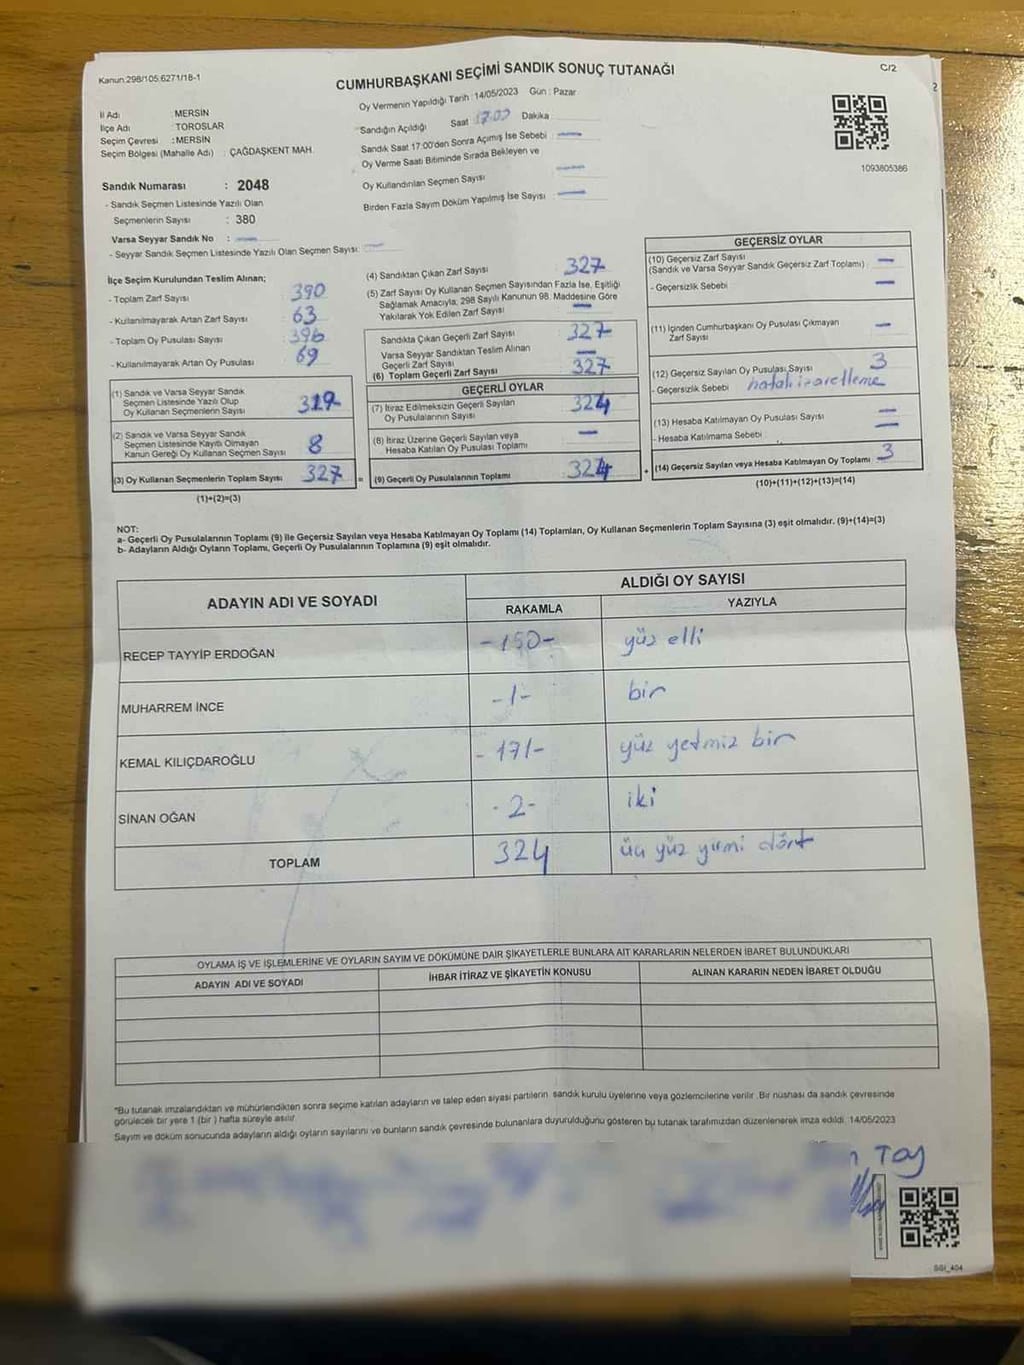 Kanun:298/105:6271/18-1
C/2
CUMHURBAŞKANI SEÇİMİ SANDIK SONUÇ TUTANAĞI
Oy Vermenin Yapıldığı Tarih : 14/05/2023 Gün : Pazar
İl Adı : MERSİN
İlçe Adı : TOROSLAR
Seçim Çevresi : MERSİN
Seçim Bölgesi (Mahalle Adı) : ÇAĞDAŞKENT MAH.
Sandığın Açıldığı Saat 17:00 Dakika
Sandık Saat 17:00'den Sonra Açımış İse Sebebi —
Oy Verme Saati Bitiminde Sırada Bekleyen ve
Oy Kullandırılan Seçmen Sayısı —
Birden Fazla Sayım Döküm Yapılmış İse Sayısı —
1093805386
Sandık Numarası : 2048
- Sandık Seçmen Listesinde Yazılı Olan
Seçmenlerin Sayısı : 380
Varsa Seyyar Sandık No : —
- Seyyar Sandık Seçmen Listesinde Yazılı Olan Seçmen Sayısı: —
İlçe Seçim Kurulundan Teslim Alınan;
- Toplam Zarf Sayısı 390
- Kullanılmayarak Artan Zarf Sayısı 63
- Toplam Oy Pusulası Sayısı 396
- Kullanılmayarak Artan Oy Pusulası 69
(1) Sandık ve Varsa Seyyar Sandık
Seçmen Listesinde Yazılı Olup
Oy Kullanan Seçmenlerin Sayısı 319
(2) Sandık ve Varsa Seyyar Sandık
Seçmen Listesinde Kayıtlı Olmayan
Kanun Gereği Oy Kullanan Seçmen Sayısı 8
(3) Oy Kullanan Seçmenlerin Toplam Sayısı 327
(1)+(2)=(3)
(4) Sandıktan Çıkan Zarf Sayısı 327
(5) Zarf Sayısı Oy Kullanan Seçmen Sayısından Fazla İse, Eşitliği
Sağlamak Amacıyla; 298 Sayılı Kanunun 98. Maddesine Göre
Yakılarak Yok Edilen Zarf Sayısı —
Sandıkta Çıkan Geçerli Zarf Sayısı 327
Varsa Seyyar Sandıktan Teslim Alınan
Geçerli Zarf Sayısı —
(6) Toplam Geçerli Zarf Sayısı 327
GEÇERLİ OYLAR
(7) İtiraz Edilmeksizin Geçerli Sayılan
Oy Pusulalarının Sayısı 324
(8) İtiraz Üzerine Geçerli Sayılan veya
Hesaba Katılan Oy Pusulası Toplamı —
= (9) Geçerli Oy Pusulalarının Toplamı 324
GEÇERSİZ OYLAR
(10) Geçersiz Zarf Sayısı
(Sandık ve Varsa Seyyar Sandık Geçersiz Zarf Toplamı) : —
- Geçersizlik Sebebi —
(11) İçinden Cumhurbaşkanı Oy Pusulası Çıkmayan
Zarf Sayısı —
(12) Geçersiz Sayılan Oy Pusulası Sayısı 3
- Geçersizlik Sebebi hatalı işaretleme
(13) Hesaba Katılmayan Oy Pusulası Sayısı —
- Hesaba Katılmama Sebebi —
+ (14) Geçersiz Sayılan veya Hesaba Katılmayan Oy Toplamı 3
(10)+(11)+(12)+(13)=(14)
NOT:
a- Geçerli Oy Pusulalarının Toplamı (9) ile Geçersiz Sayılan veya Hesaba Katılmayan Oy Toplamı (14) Toplamları, Oy Kullanan Seçmenlerin Toplam Sayısına (3) eşit olmalıdır. (9)+(14)=(3)
b- Adayların Aldığı Oyların Toplamı, Geçerli Oy Pusulalarının Toplamına (9) eşit olmalıdır.
ADAYIN ADI VE SOYADI
ALDIĞI OY SAYISI
RAKAMLA YAZIYLA
RECEP TAYYİP ERDOĞAN -150- yüz elli
MUHARREM İNCE -1- bir
KEMAL KILIÇDAROĞLU -171- yüz yetmiz bir
SİNAN OĞAN -2- iki
TOPLAM 324 üç yüz yirmi dört
OYLAMA İŞ VE İŞLEMLERİNE VE OYLARIN SAYIM VE DÖKÜMÜNE DAİR ŞİKAYETLERLE BUNLARA AİT KARARLARIN NELERDEN İBARET BULUNDUKLARI
ADAYIN ADI VE SOYADI İHBAR İTİRAZ VE ŞİKAYETİN KONUSU ALINAN KARARIN NEDEN İBARET OLDUĞU
*Bu tutanak imzalandıktan ve mühürlendikten sonra seçime katılan adayların ve talep eden siyasi partilerin sandık kurulu üyelerine veya gözlemcilerine verilir. Bir nüshası da sandık çevresinde
görülecek bir yere 1 (bir) hafta süreyle asılır.
Sayım ve döküm sonucunda adayların aldığı oyların sayılarını ve bunların sandık çevresinde bulunanlara duyurulduğunu gösteren bu tutanak tarafımızdan düzenlenerek imza edildi. 14/05/2023
Toy
SGI_404